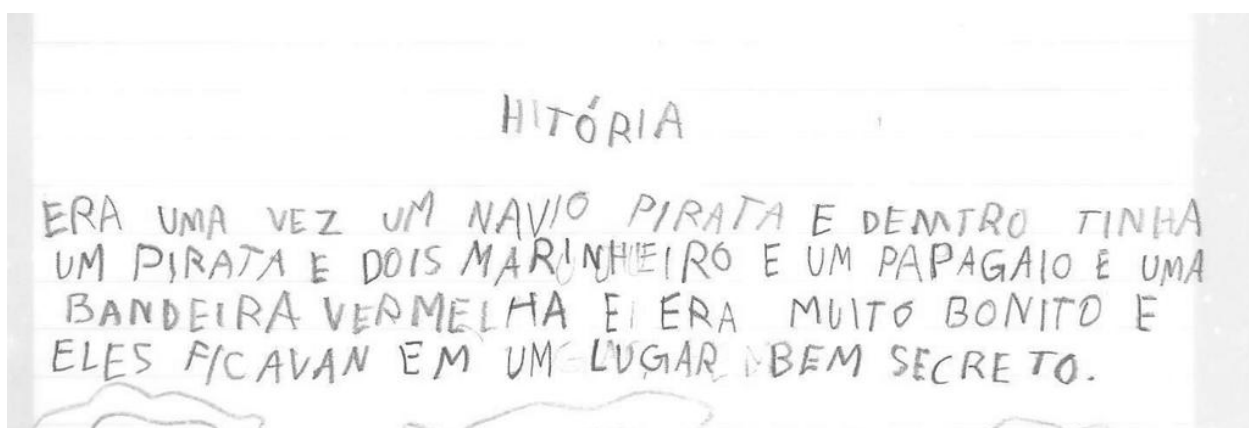 HITÓRIA
ERA UMA VEZ UM NAVIO PIRATA E DEMTRO TINHA
UM PIRATA E DOIS MARINHEIRO E UM PAPAGAIO E UMA
BANDEIRA VERMELHA E ERA MUITO BONITO E
ELES FICAVAN EM UM LUGAR BEM SECRETO.